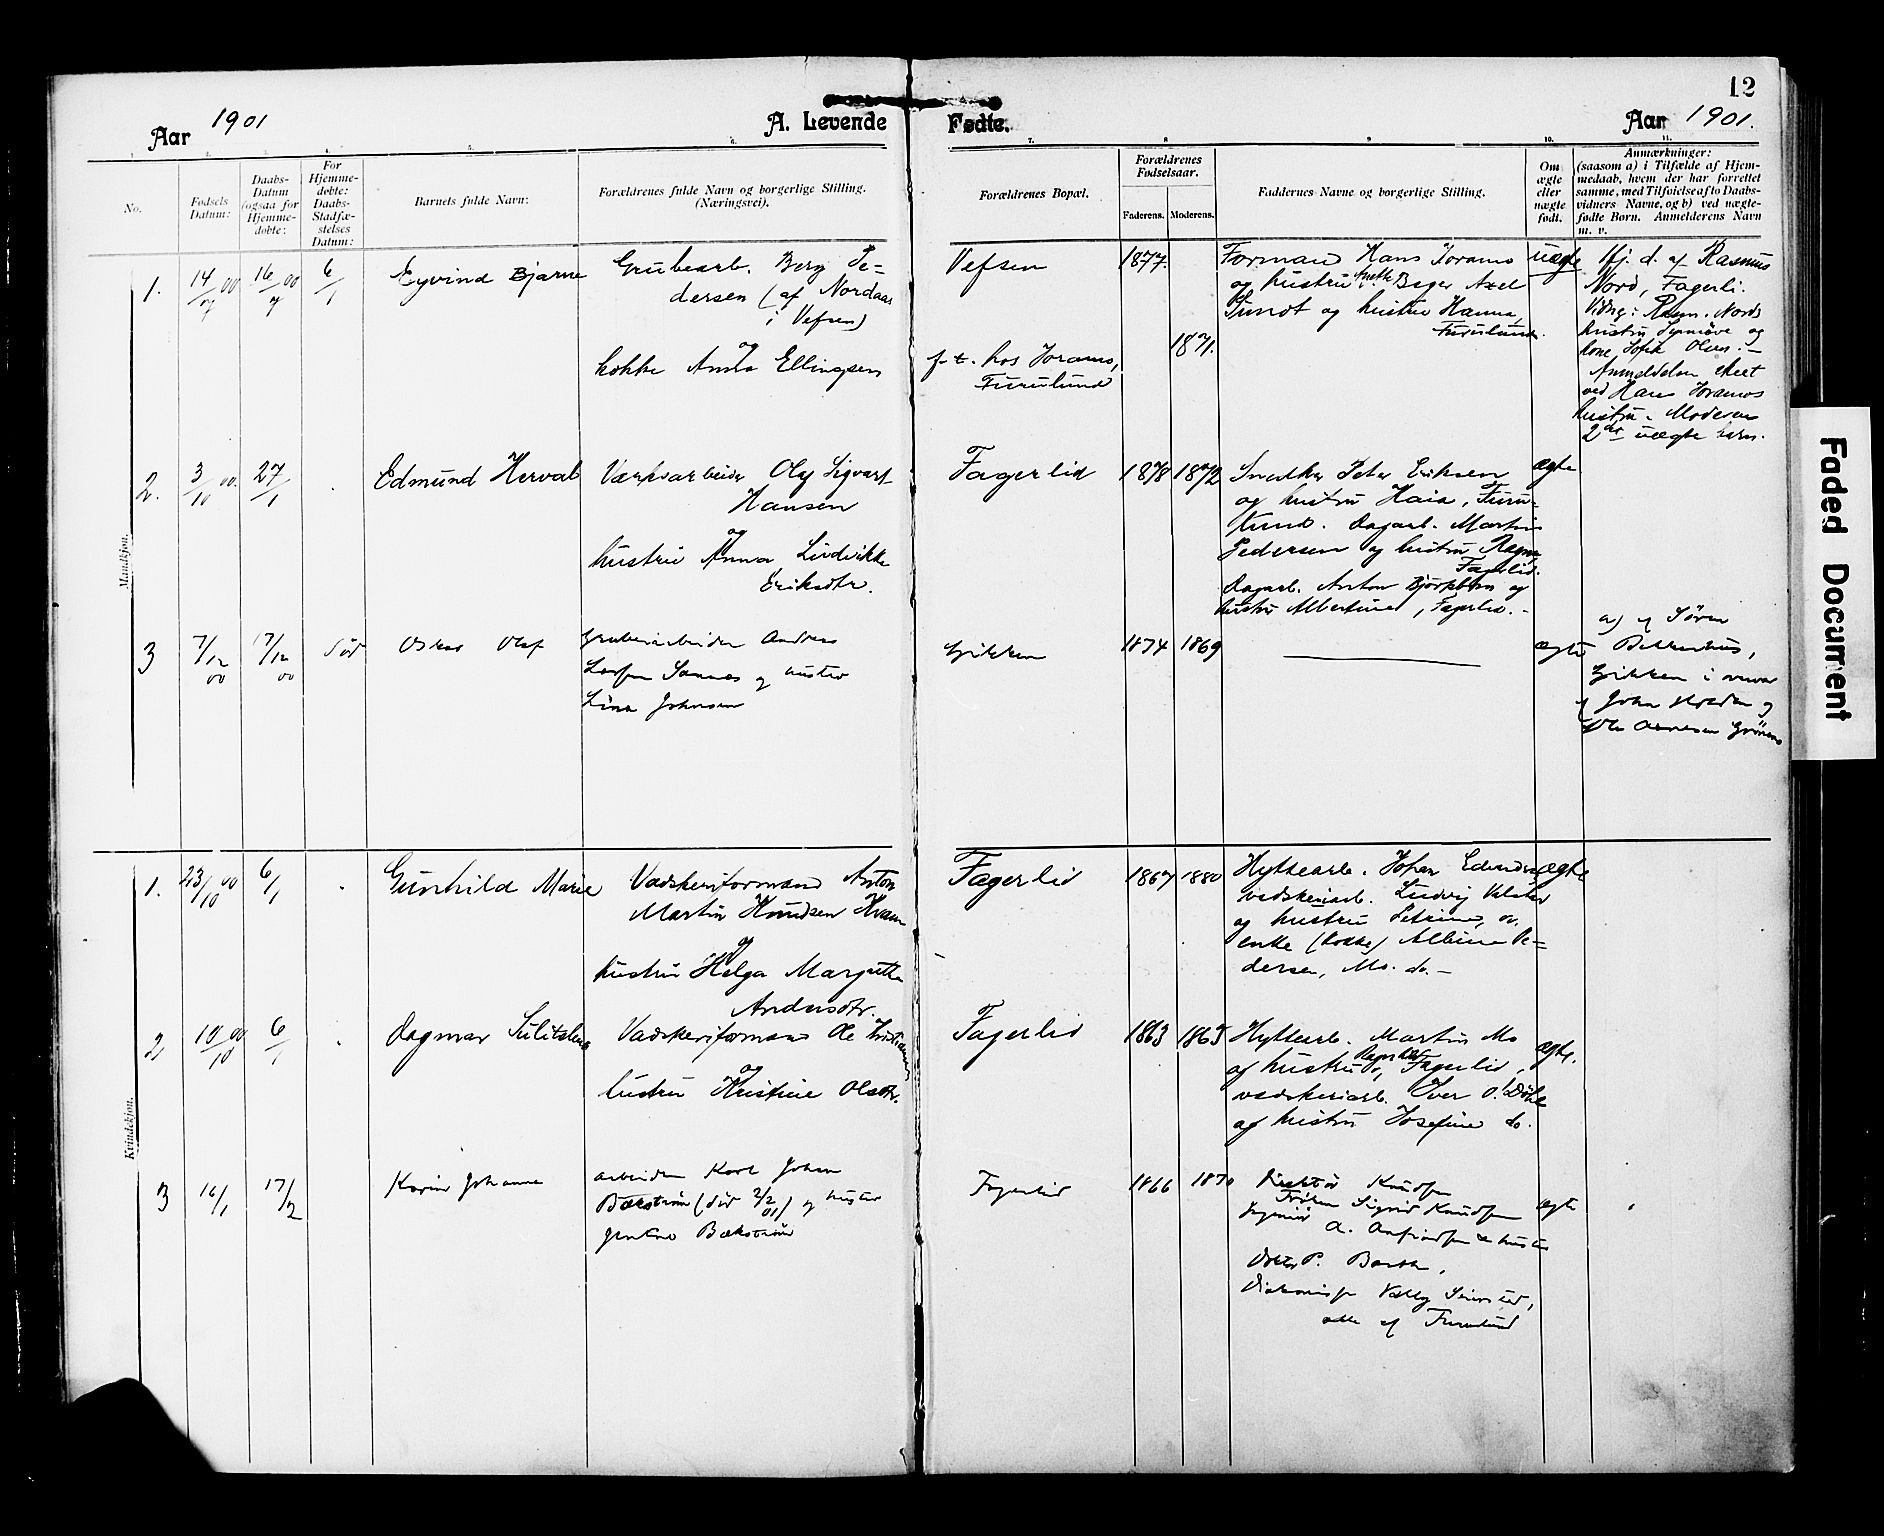 12
Aar 1901
A. Levende Fødte.
Aar 1901.
1. 2. 3. 4. 5. 6. 7. 8 9 10. 11.
No.
Fødsels Datum:
Daabs-Datum (ogsaa for Hjemmedøbte:
For Hjemmedøbte: Daabs-Stadfæstelses Datum:
Barnets fulde Navn:
Forældrenes fulde Navn og borgerlige Stilling. (Næringsvei).
Forældrenes Bopæl.
Forældrenes Fødselsaar.
Faderens. Moderens.
Faddernes Navne og borgerlige Stilling.
Om ægte eller uægte født.
Anmærkninger:
(saasom a) i Tilfælde af Hjem-
medaab, hvem der har forrettet
samme, med Tilføielse af to Daabs-
vidners Navne, og b) ved uægte-
fødte Børn. Anmelderens Navn
m. v.
Mandkjøn.
1. 14/7 00 16/7 00 6/1 Eyvind Bjarne
Grubearb. Berg Pe-
dersen (af Nordaas
i Vefsen)
og
kokke Anna Ellingsen
Vefsen
f. t. hos Jorams,
Furulund
1877. 1871.
Formand Hans Jorams
og hustru Bager Axel
og hustru Hanna,
Furulund.
uægte
Hj. d. af Rasmus
Nord, Fagerli.
Vidne: Rasm. Nords
hustru og
kone Sofie Olsen. –
Anmeldelse skeet
ved Hans Jorams
hustru. Moderens
2det uægte barn.
2. 3/10 00. 27/1 . Edmund Hervald
Værksarbeider Ole Sigvart
Hansen
og
hustru Anna Lindvikke
Eriksdtr.
Fagerlid
1878 1872
Snedker Peter Eriksen
og hustru Haia, Furu-
lund. Dagarb. Martin
Pedersen og hustru Ragna
Fagerlid.
Dagarb. Anton Bjørkbom og
hustru Albertine, Fagerlid. –
ægte
3 7/12 00 17/12 00 død Oskar Olaf
Grubearbeider Anders
Larsen Sannes og hustru
Lina Johnsen
Gikken
1874 1869
ægte
a) af Søren
Bekkenhus,
Gikken i nærvær
af Johan og
Ole Arnesen
Kvindekjøn.
1. 23/10 00 6/1 . Gunhild Marie
Vadskeriformand Anton
Martin Knudsen Kvam
og
hustru Helga Margrethe
Andersdtr.
Fagerlid
1867 1880
Hyttearb. Johan Edvardsen
vadskeriarb. Ludvig
og hustru Petrine, do,
enke (kokke) Albine Pe-
dersen, Mo. do. –
ægte
2 10/10 00 6/1 . Dagmar Sulitelma
Vadskeriformand Ole Kristiansen
og
hustru Kristine Olsdtr.
Fagerlid
1863 1865
Hyttearb. Martin Mo
og hustru Fagerlid,
vadskeriarb. Iver O.
og hustru Josefine do.
ægte.
3 16/1 17/2 Karin Johanne
arbeider Karl Johan
Bækstrøm (død 2/2 01) og hustru
Bækstrøm
Fagerlid
1866 1870
Direktør Knudsen
Frøken Sigrid Knudsen
Ingeniør A. & hustru
Doktor P.
Diakonisse Valborg
alle af Furulund
ægte
Faded Document